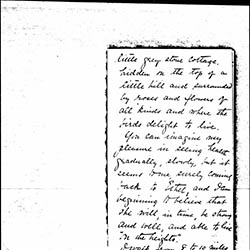 little grey stone cottage,
hidden on the top of a
little hill and surrounded
by roses and flowers of
all kinds and where the
birds delight to live.
You can imagine my
pleasure in seeing health
gradually, slowly, but it
seems to me surely coming
back to Ethel, and I am
beginning to believe that
she will, in time, be strong
and well, and able to live
on the heights.
I walk from 8 to 10 miles